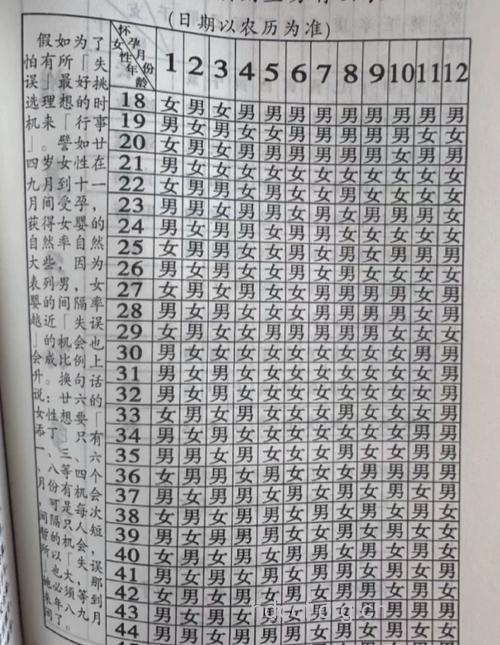 (日期以农历为准)
怀孕月份 女性年龄 1 2 3 4 5 6 7 8 9 10 11 12
18 女 男 女 男 男 男 男 男 男 男 男 男
19 男 女 男 女 女 男 男 男 男 男 女 女
20 女 男 女 男 男 男 男 男 男 女 男 男
21 男 女 女 女 女 女 女 女 女 女 女 女
22 女 男 男 女 男 女 女 男 女 女 女 女
23 男 男 女 男 男 女 男 女 男 男 男 女
24 男 女 男 男 女 男 男 女 女 女 女 女
25 女 男 男 女 女 男 女 男 男 男 男 男
26 男 女 男 女 女 男 女 男 女 女 女 女
27 女 男 女 男 女 女 男 男 男 男 女 男
28 男 女 男 女 女 女 男 男 男 男 女 女
29 女 男 女 女 男 男 男 男 男 女 女 女
30 男 女 女 女 女 女 女 女 女 女 男 男
31 男 女 男 女 女 女 女 女 女 女 女 男
32 男 女 男 女 女 女 女 女 女 女 女 男
33 女 男 女 男 女 女 女 男 女 女 女 男
34 男 女 男 女 女 女 女 女 女 女 男 男
35 男 男 女 男 女 女 女 男 女 女 男 男
36 女 男 男 女 男 女 女 女 男 男 男 男
37 男 女 男 男 女 男 女 男 女 男 女 男
38 女 男 女 男 男 女 男 女 男 女 男 女
39 男 女 男 男 男 女 女 男 女 男 女 女
40 女 男 女 男 女 男 男 女 男 女 男 女
41 男 女 男 女 男 女 男 男 女 男 女 男
42 女 男 女 男 女 男 女 男 男 女 男 女
43 男 女 男 女 男 女 男 女 男 男 男 男
44 男 男 女 男 男 男 女 男 女 男 女 女
假如为了
怕有所「失
误」最好挑
选理想的时
机来「行事
」。譬如廿
四岁女性在
九月到十一
月间受孕，
获得女婴的
自然率自然
大些，因为
表列男，女
婴的间隔率
越近「失误
」的机会也
会成比例上
升。换句话
说：廿六的
女性想要「
添丁」只有
一、三、六
、八等四个
月份有机会
，可是每次
间隔只人短
暂的机会，
所以「失误
」也大，那
她必须等到
来年八九月
间了。